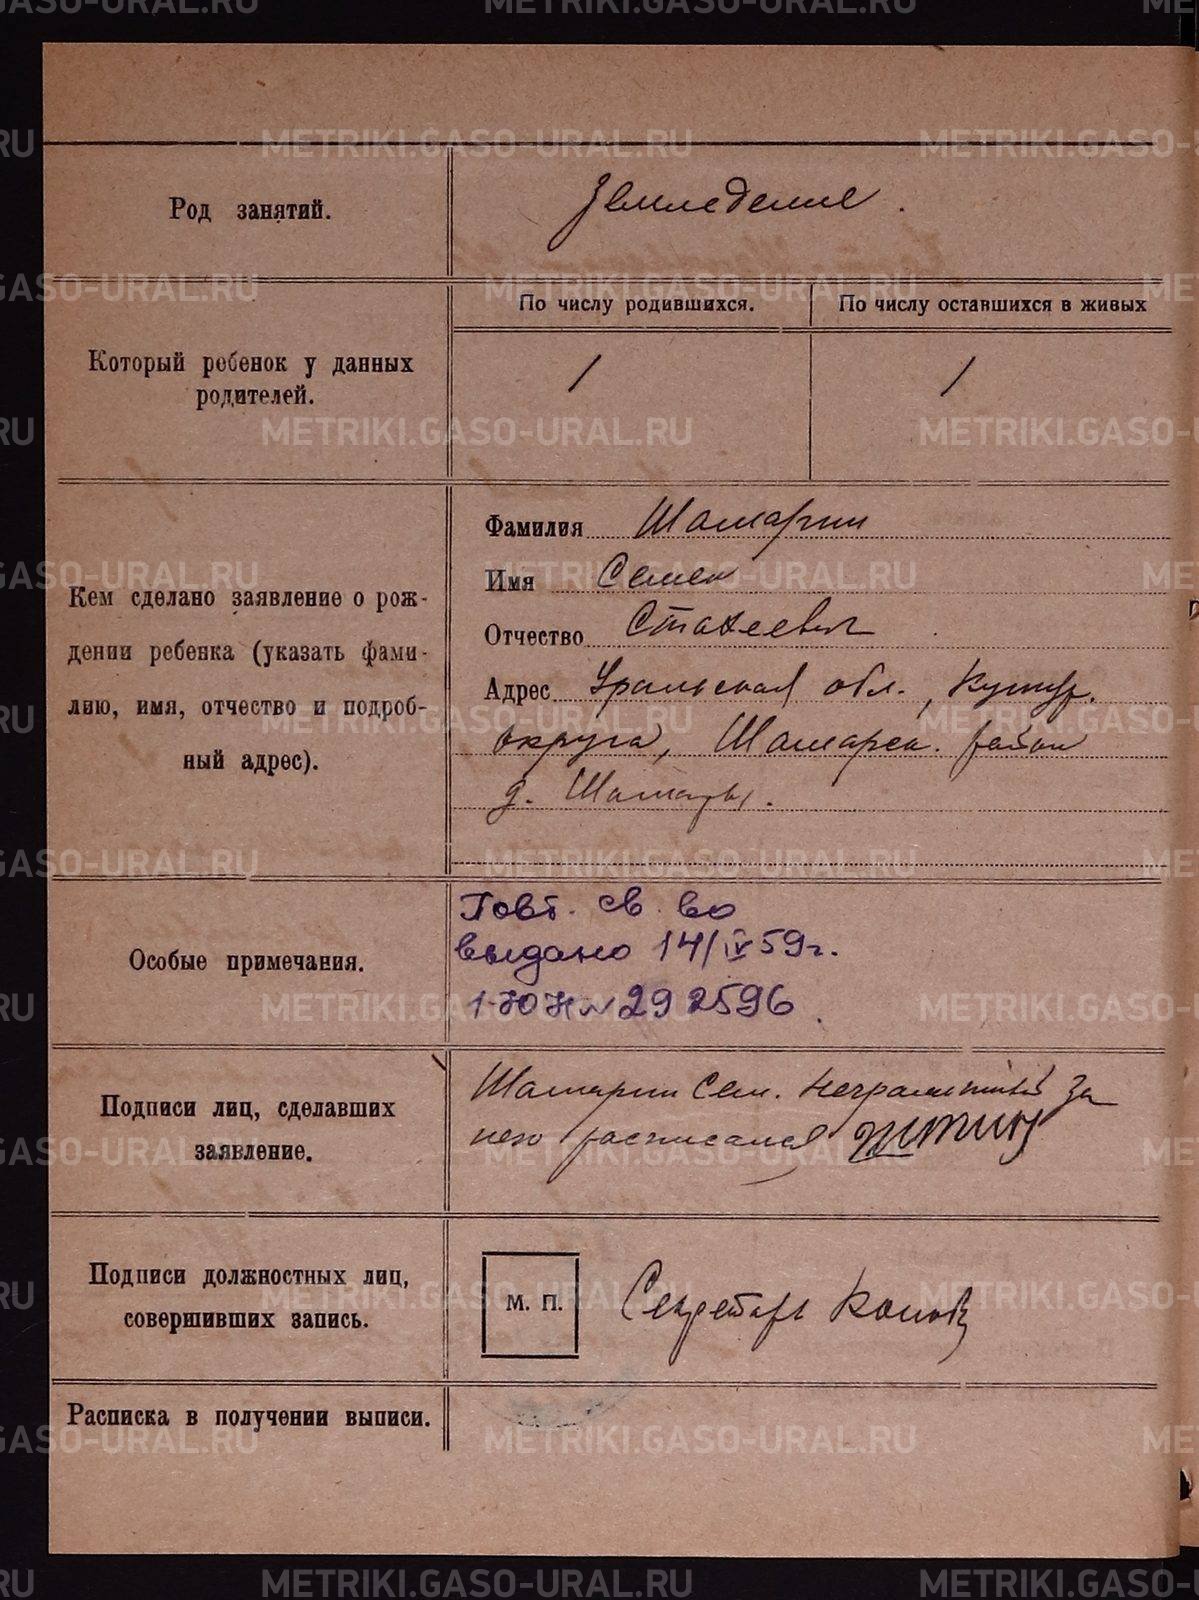 METRIKI.GASO-URAL.RU
Род занятий.
Земледелие.
Который ребенок у данных
родителей.
По числу родившихся.
По числу оставшихся в живых
1
1
Кем сделано заявление о рож-
дении ребенка (указать фами-
лию, имя, отчество и подроб-
ный адрес).
Фамилия Шамарин
Имя Семен
Отчество Стахеевич
Адрес Уральская обл., Кунгур.
округа, Шамарск. район
д. Шамары.
Особые примечания.
Повт. св. во
выдано 14/IV 59г.
1-ЮН № 292596.
Подписи лиц, сделавших
заявление.
Шамарин Сем. неграмотный за
него расписался
Подписи должностных лиц,
совершивших запись.
М. П.
Секретарь
Расписка в получении выписи.